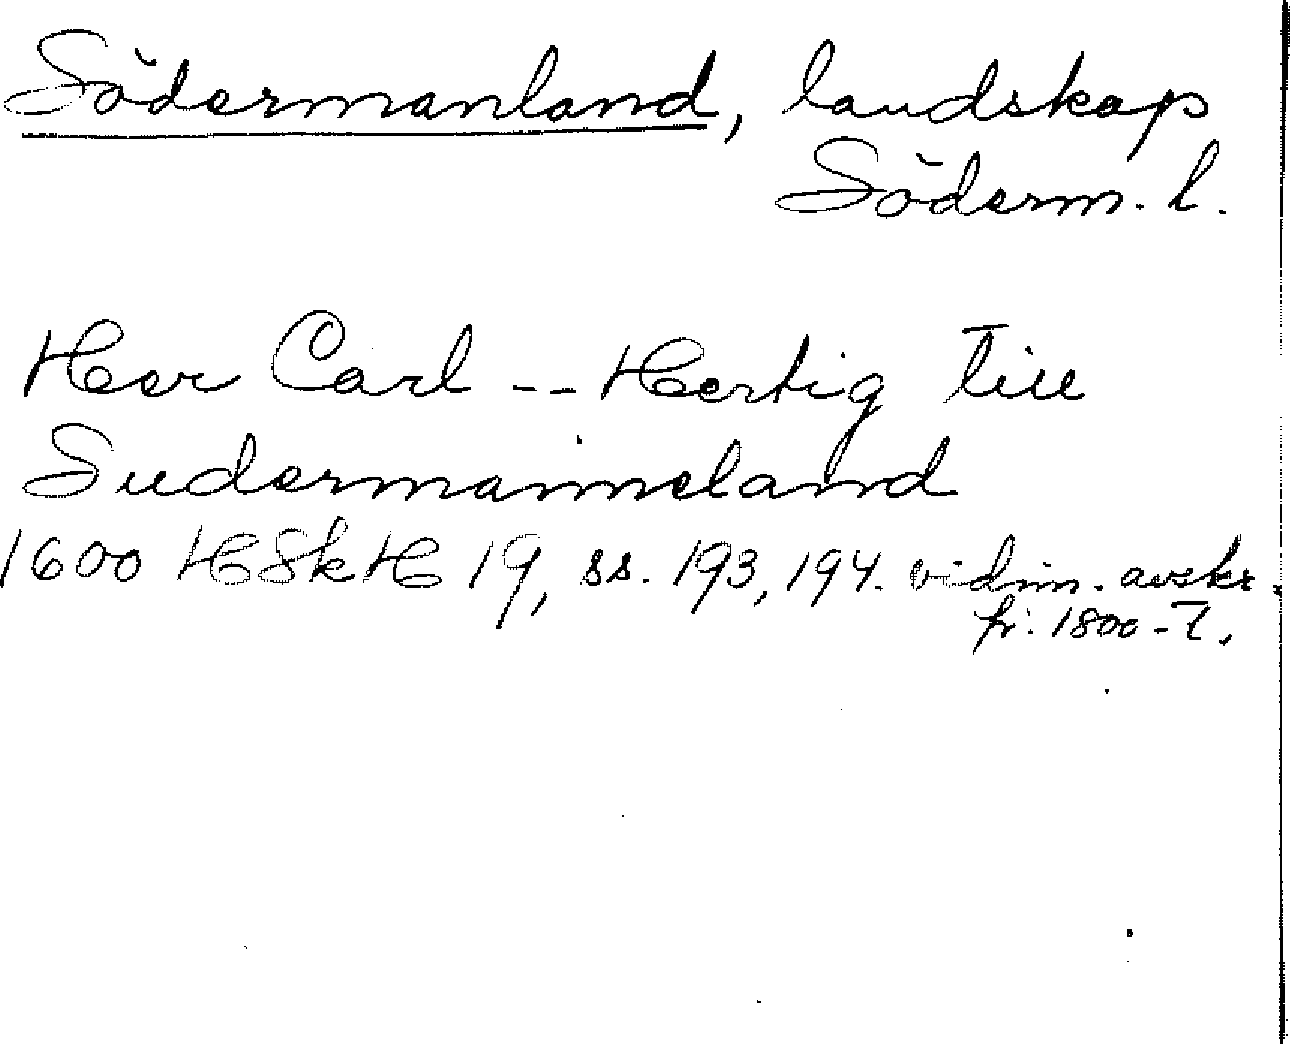 Södermanland, landskap
Söderm. l.
Her Carl -- Hertig Till
Sudermanneland
1600 HSkH 19, ss. 193, 194. vidim. avskr.
fr. 1800-T.